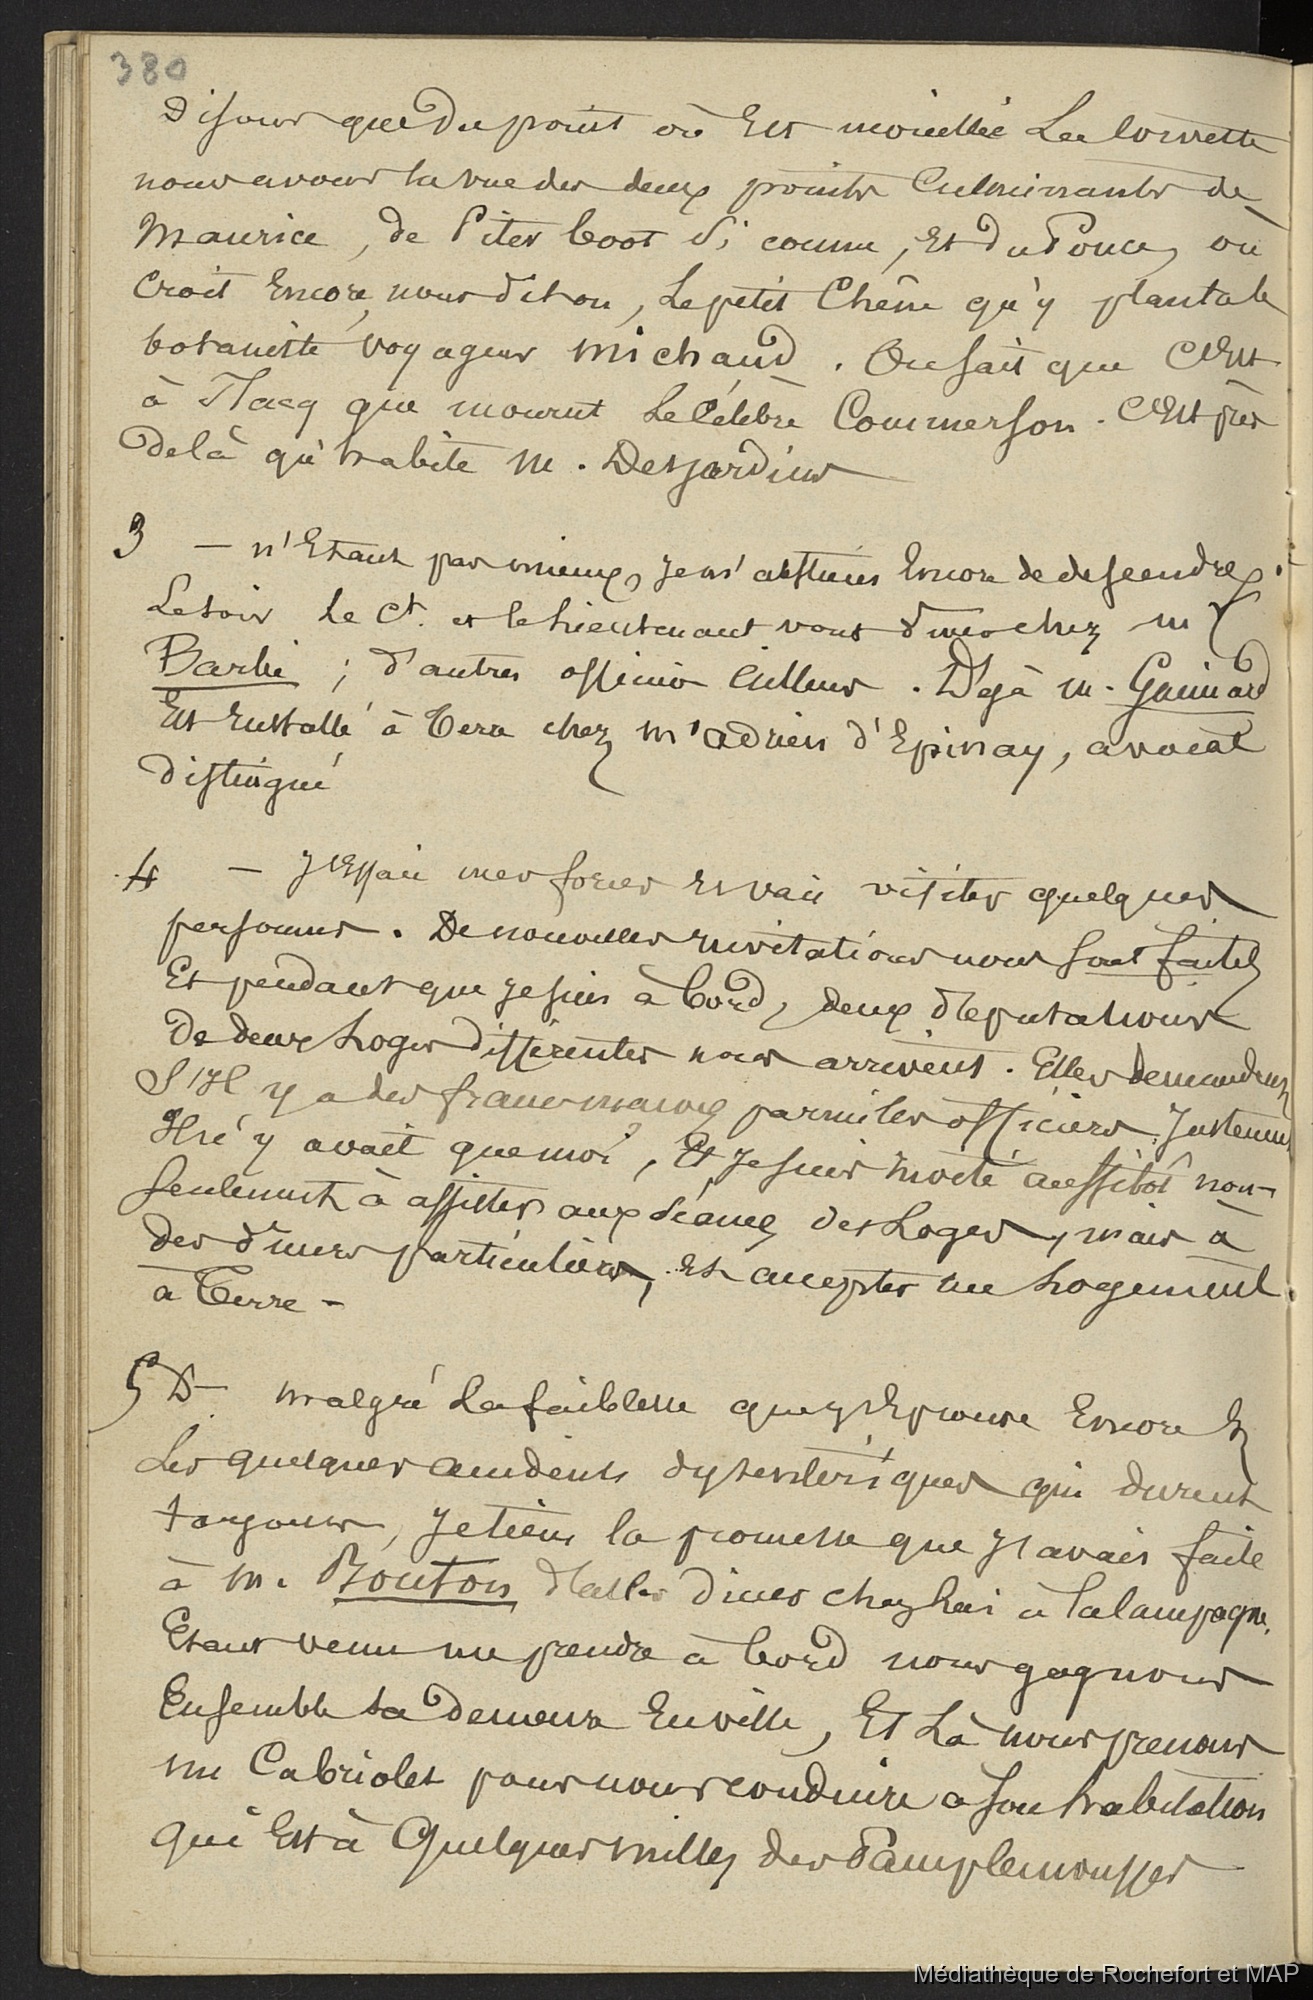 380
Disons que du point où Est mouillée La Corvette
nous avons la vue des deux points Culminants de
Maurice, de Piter boot si connu, Et du Pouce, où
croit Encore, nous dit on, Le petit Chêne qu'y planta le
botaniste voyageur Michaud. On sait que C'Est
à Flacq que mourut Le Célèbre Commerson. C'Est près
de là qu'habite M. Desjardins
3 — n'Etant pas mieux, Je m'abstiens Encore de descendre.
Le soir Le Ct. et le Lieutenant vont diner chez Mr
Barbé ; d'autres officiers ailleurs. Déjà M. Gaimard
Est Installé à terre chez Mr adrien d'Epinay, avocat
distingué
4 — J'Essaie mes forces Et vais visiter quelques
personnes. De nouvelles invitations nous sont faites
Et pendant que Je suis à bord, deux députations
De deux Loges différentes nous arrivent. Elles demandent
S'Il y a des francs-maçons parmi les officiers. Justement
Il n'y avait que moi, Et Je suis invité aussitôt non-
seulement à assister aux séances des Loges, mais à
des diners particuliers, Et accepter un Logement
à terre -
5 D — malgré La faiblesse que J'Eprouve Encore Et
Les quelques accidents dysentériques qui durent
toujours, Je tiens la promesse que J'avais faite
à M. Bouton d'aller diner chez lui à la campagne.
Etant venu me prendre à bord nous gagnons
Ensemble sa demeure En ville, Et Là nous prenons
un Cabriolet pour nous conduire à son habitation
qui Est à Quelques milles des Pamplemousses
Médiathèque de Rochefort et MAP